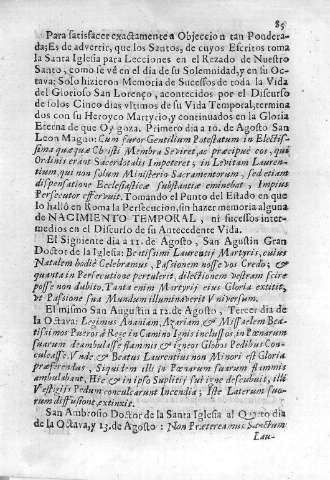 85
Para satisfacer exactamente a Objeccion tan Pondera-
da; Es de advertir, que los Santos, de cuyos Escritos toma
la Santa Iglesia para Lecciones en el Rezado de Nuestro
Santo, como se vè en el dia de su Solemnidad, y en su Oc-
tava; Solo hizieron Memoria de Sucessos de toda la Vida
del Glorioso San Lorenço, acontecidos por el Discurso
de solos Cinco dias vltimos de su Vida Temporal, termina
dos con su Heroyco Martyrio, y continuados en la Gloria
Eterna de que Oy goza. Primero dia a 10. de Agosto San
Leon Magno: Cum furor Gentilium Potestatum in Electis-
sima quæque Christi Membra Sæviret, ac præcipuè eos, qui
Ordinis erant Sacerdotalis Impeteret; in Levitam Lauren-
tium, qui non solum Ministerio Sacramentorum, sed etiam
dispensatione Ecclesiasticæ substantiæ eminebat, Impius
Persecutor efferuit. Tomando el Punto del Estado en que
lo hallò en Roma la Persecucion, sin hazer memoria alguna
de NACIMIENTO TEMPORAL, ni sucessos inter-
medios en el Discurso de su Antecedente Vida.
El Siguiente dia a 11. de Agosto, San Agustin Gran
Doctor de la Iglesia: Beatissimi Laurentij Martyris, cuius
Natalem hodiè Celebramus, Passionem nosse vos Credo; &
quanta in Persecutione pertulerit, dilectionem vestram scire
posse non dubito. Tanta enim Martyrij eius Gloria extitit,
vt Passione sua Mundum illuminaverit Vniversum.
El mismo San Augustin a 12. de Agosto, Tercer dia de
la Octava: Legimus Ananiam, Azariam & Missaelem Bea-
tissimos Pueros à Rege in Camino Ignis inclusos in Pœnarum
suarum deambulasse flammis & igneos Globos Pedibus Con-
culcasse. Vnde & Beatus Laurentius non Minori est Gloria
præferendus, Siquidem illi in Pœnarum suarum flammis
ambulabant, Hic & in ipso Suplitij sui igne decubuit, illi
Vestigijs Pedum conculcarunt Incendia; Iste Laterum suo-
rum diffusione extinxit.
San Ambrosio Doctor de la Santa Iglesia al Quarto dia
de la Octava, y 13. de Agosto: Non Prætereamus Sanctum
Lau-